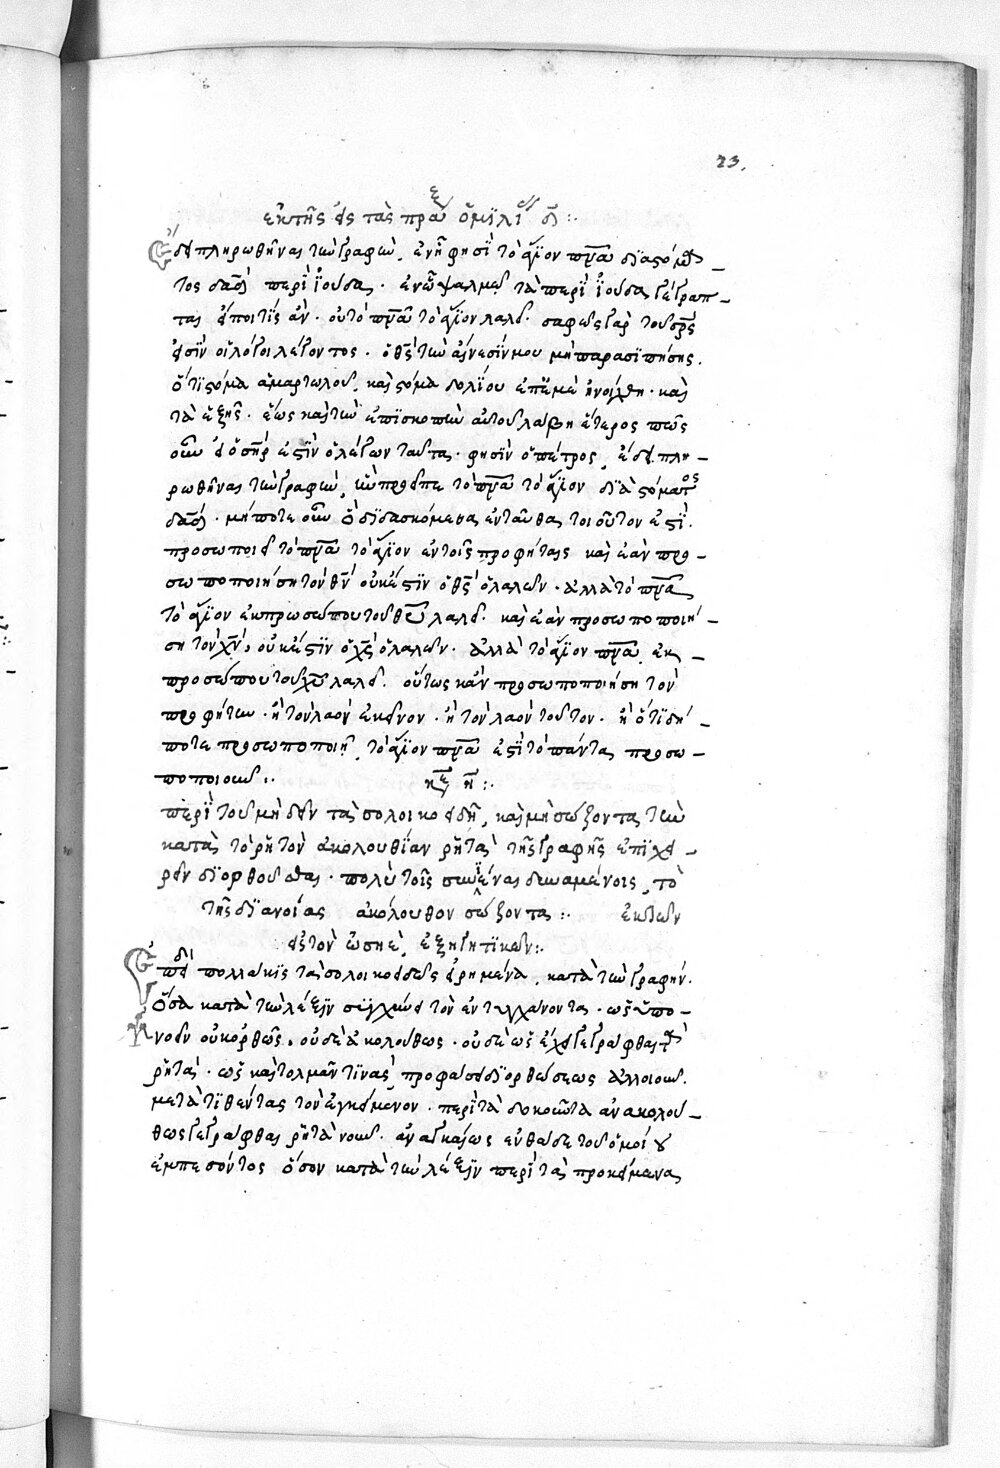 23.
ἐκ τῆς εἰς τὰς πράξ ὁμιλί δ :.
Ἔδει πληρωθῆναι τὴν γραφὴν, ἐν ᾗ φησὶ τὸ ἅγιον πνα διὰ στόμα
τος δαδ περὶ ἰούδα. ἐν ᾧ ψαλμῷ τὰ περὶ ἰούδα γέγραπ-
ται εἴποι τὶς ἂν. οὐ τὸ πνα τὸ ἅγιον λαλεῖ. σαφῶς γὰρ τοῦ σρς
εἰσὶν οἱ λόγοι λέγοντος. ὁ θς τὴν αἴνεσίν μου μὴ παρασιωπήσῃς.
ὅτι στόμα ἁμαρτωλοῦ, καὶ στόμα δολίου ἐπ' ἐμὲ ἠνοίχθη. καὶ
τὰ ἑξῆς. ἕως καὶ τὴν ἐπισκοπὴν αὐτοῦ λάβῃ ἕτερος πῶς
οὖν εἰ ὁ σηρ ἐστὶν ὁ λέγων ταῦτα. φησὶν ὁ πέτρος, ἔδει πλη-
ρωθῆναι τὴν γραφὴν, ἣν προεῖπε τὸ πνα τὸ ἅγιον διὰ στόματος
δαδ. μήποτε οὖν ὃ διδασκόμεθα ἐνταῦθα τοιοῦτον ἐστί.
προσωποποιεῖ τὸ πνα τὸ ἅγιον ἐν τοῖς προφήταις καὶ ἐὰν προ-
σωποποιήσῃ τὸν θν οὐκ ἔστιν ὁ θς ὁ λαλῶν. ἀλλὰ τὸ πνα
τὸ ἅγιον ἐκ προσώπου τοῦ θυ λαλεῖ. καὶ ἐὰν προσωποποιή-
σῃ τὸν χν, οὐκ ἔστιν ὁ χς ὁ λαλῶν. ἀλλὰ τὸ ἅγιον πνα ἐκ
προσώπου τοῦ χυ λαλεῖ. οὕτως κἂν προσωποποιήσῃ τὸν
προφήτην. ἢ τὸν λαὸν ἐκεῖνον. ἢ τὸν λαὸν τοῦτον. ἢ ὅ τι δή-
ποτε προσωποποιῇ, τὸ ἅγιον πνα ἐστὶ τὸ πάντα προσω-
ποποιοῦν :. κεφ η :.
περὶ τοῦ μὴ δεῖν τὰ σολοικοειδῆ, καὶ μὴ σώζοντα τὴν
κατὰ τὸ ῥητὸν ἀκολουθίαν ῥητὰ τῆς γραφῆς ἐπιχει-
ρεῖν διορθοῦσθαι. πολὺ τοῖς συνιέναι δυναμένοις, τὸ
τῆς διανοίας ἀκόλουθον σώζοντα :. ἐκ τῶν
εἰς τὸν ὡσηὲ, ἐξηγητικῶν :.
Ἐπεὶ δὲ πολλάκις τὰ σολοικοειδῶς εἰρημένα, κατὰ τὴν γραφήν.
ὅσα κατὰ τὴν λέξιν συγχεῖ τὸν ἐντυγχάνοντα. ὡς ὑπο-
νοεῖν οὐκ ὀρθῶς, οὐδὲ ἀκολούθως. οὐδὲ ὡς ἔχει γεγράφθαι τὰ
ῥητὰ. ὡς καὶ τολμᾶν τινὰς προφάσει διορθώσεως ἀλλοιοῦν.
μετατιθέντας τὸν ἐγκείμενον. περὶ τὰ δοκοῦντα ἀνακολού-
θως γεγράφθαι ῥητὰ νοῦν. ἀναγκαίως ἐνθάδε τοῦ ὁμοίου
ἐμπεσόντος ὅσον κατὰ τὴν λέξιν περὶ τὰ προκείμενα